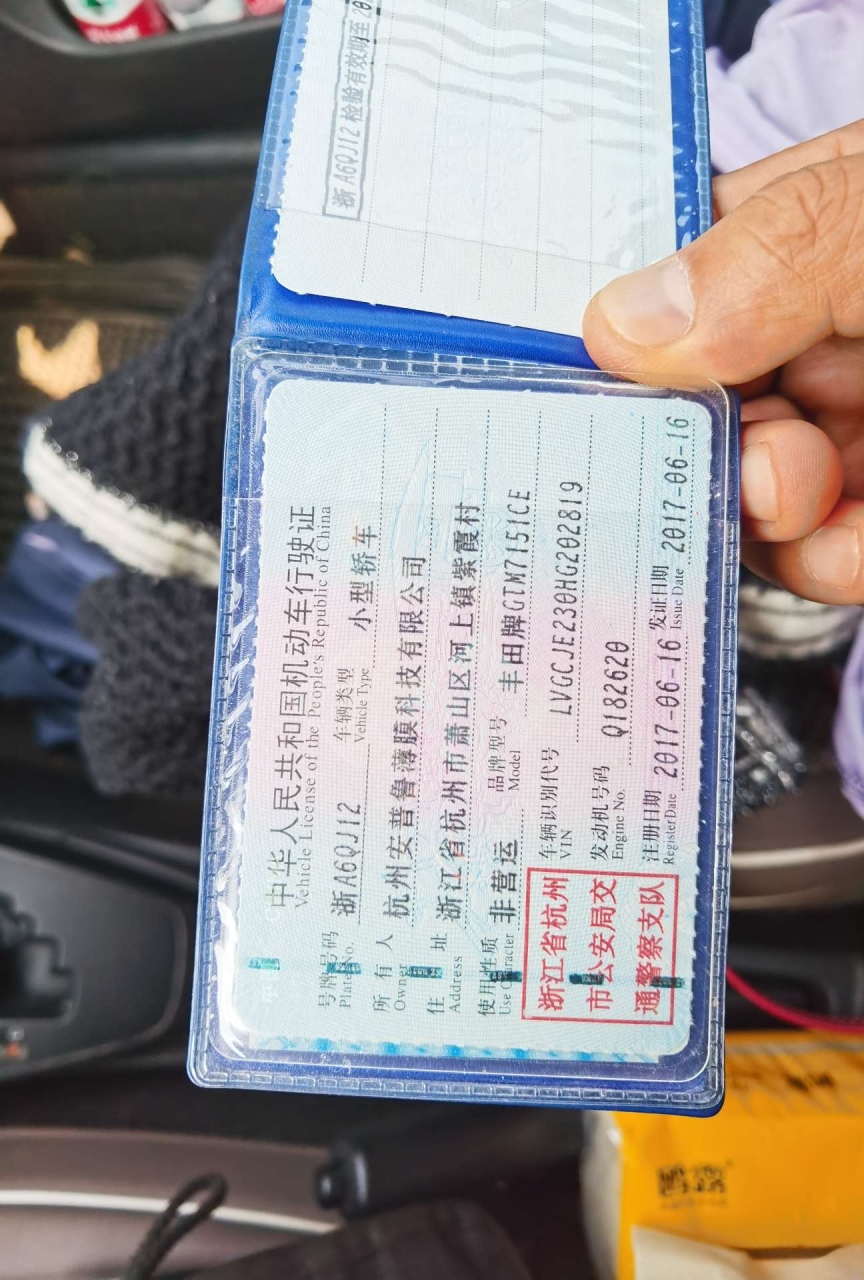 浙A6QJ12 检验有效期至20
中华人民共和国机动车行驶证
Vehicle License of the People's Republic of China
号牌号码 浙A6QJ12 车辆类型 小型轿车
Plate No. Vehicle Type
所有人 杭州安普鲁薄膜科技有限公司
Owner
住址 浙江省杭州市萧山区河上镇紫霞村
Address
使用性质 非营运 品牌型号 丰田牌GTM7151CE
Use Character Model
浙江省杭州
市公安局交
通警察支队
车辆识别代号 LVGCJE230HG202819
VIN
发动机号码 Q182620
Engine No.
注册日期 2017-06-16 发证日期 2017-06-16
Register Date Issue Date